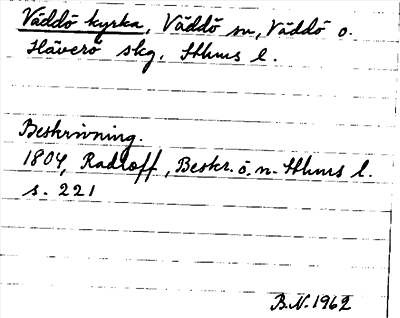 Väddö kyrka, Väddö sn, Väddö o.
Häverö skg, Sthms l.
Beskrivning.
1804, Radloff, Beskr. ö. n. Sthms l.
s. 221
B.N. 1962